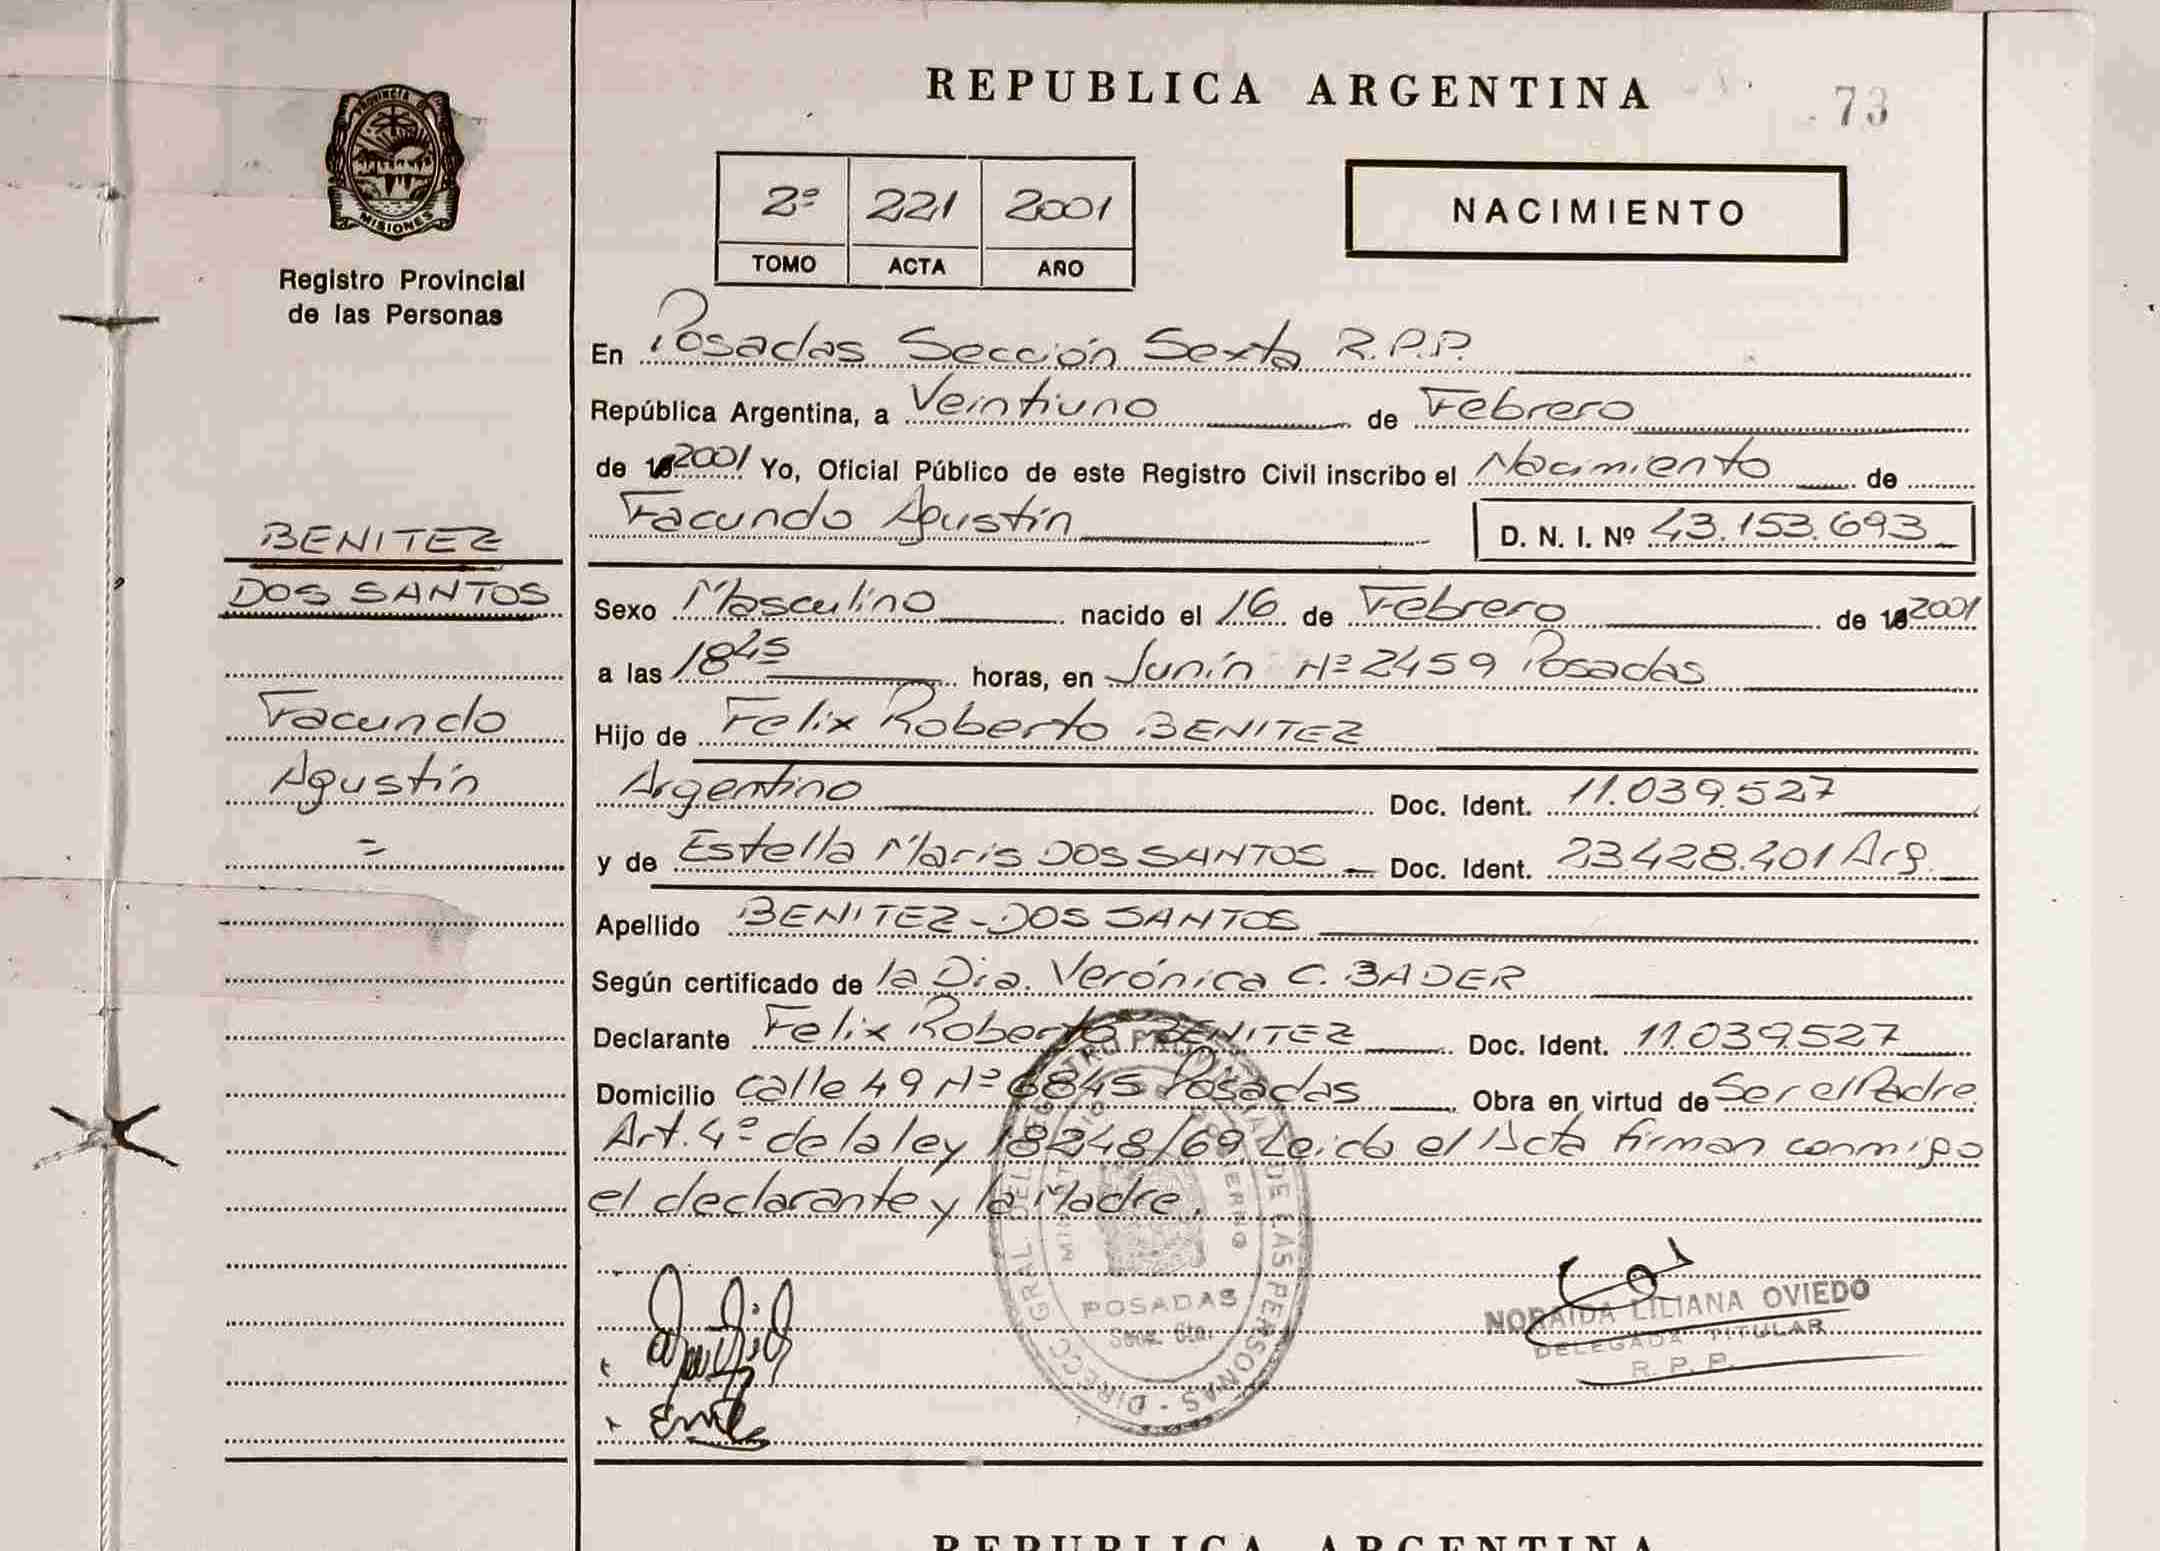 REPUBLICA ARGENTINA
73
PROVINCIA DE
MISIONES
Registro Provincial
de las Personas
2º 221 2001
TOMO ACTA AÑO
NACIMIENTO
En Posadas Sección Sexta R.P.P.
República Argentina, a Veintiuno de Febrero
de 2001 Yo, Oficial Público de este Registro Civil inscribo el Nacimiento de
Facundo Agustín D. N. I. Nº 43.153.693
BENITEZ
DOS SANTOS
Facundo
Agustín
=
Sexo Masculino nacido el 16 de Febrero de 2001
a las 18 45 horas, en Junín Nº 2459 Posadas
Hijo de Felix Roberto BENITEZ
Argentino Doc. Ident. 11.039.527
y de Estella Maris DOS SANTOS Doc. Ident. 23.428.401 Arg.
Apellido BENITEZ-DOS SANTOS
Según certificado de la Dra. Verónica C. BADER
Declarante Felix Roberto BENITEZ Doc. Ident. 11.039.527
Domicilio calle 49 Nº 6845 Posadas Obra en virtud de Ser el Padre
Art. 4º de la ley 18248/69 Leida el Acta firman conmigo
el declarante y la Madre.
POSADAS
Secc. 6ta.
NORAIDA LILIANA OVIEDO
DELEGADA TITULAR
R. P. P.
REPUBLICA ARGENTINA